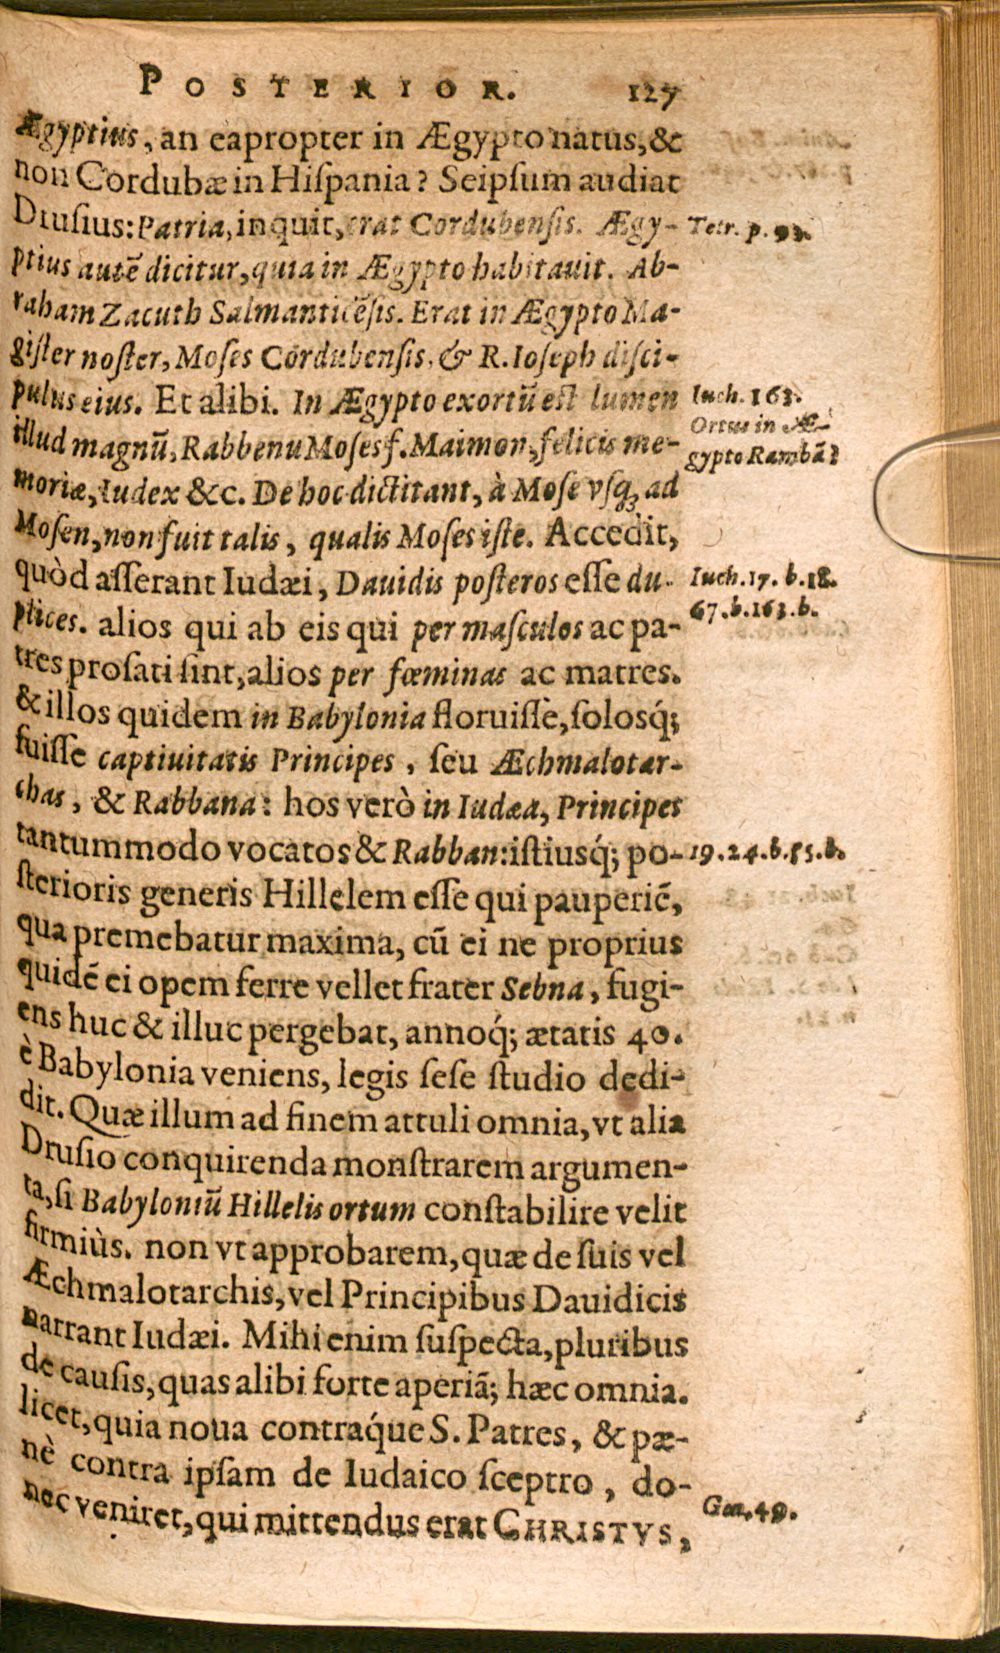 POSTERIOR. 127
Ægyptius, an eapropter in Ægypto natus, &
non Cordubæ in Hiſpania? Seipſum audiat
Druſius: Patria, inquit, erat Cordubenſis. Ægy-
Tetr. p. 93.
ptius autẽ dicitur, quia in Ægypto habitauit. Ab-
raham Zacuth Salmanticẽſis. Erat in Ægypto Ma-
giſter noſter, Moſes Cordubenſis, & R. Ioſeph diſci-
pulus eius. Et alibi. In Ægypto exortũ eſt lumen
Iuch. 163.
Ortus in Æ-
illud magnũ, Rabbenu Moſes f. Maimon, felicis me-
gypto Rambã?
moriæ, Iudex &c. De hoc dictitant, à Moſe vſq; ad
Moſen, non fuit talis, qualis Moſes iſte. Accedit,
quòd aſſerant Iudæi, Dauidis poſteros eſſe du-
Iuch. 17. b. 18.
67. b. 163. b.
plices. alios qui ab eis qui per maſculos ac pa-
tres proſati ſint, alios per fœminas ac matres.
& illos quidem in Babylonia floruiſſe, ſolosq́;
fuiſſe captiuitatis Principes, ſeu Æchmalotar-
chas, & Rabbana: hos verò in Iudæa, Principes
tantummodo vocatos & Rabban: iſtiusq́; po-
19. 24. b. 85. b.
ſterioris generis Hillelem eſſe qui pauperiẽ,
qua premebatur maxima, cũ ei ne proprius
quidẽ ei opem ferre vellet frater Sebna, fugi-
ens huc & illuc pergebat, annoq́; ætatis 40.
è Babylonia veniens, legis ſeſe ſtudio dedi-
dit. Quæ illum ad finem attuli omnia, vt alia
Druſio conquirenda monſtrarem argumen-
ta, ſi Babyloniũ Hillelis ortum conſtabilire velit
firmiùs. non vt approbarem, quæ de ſuis vel
Æchmalotarchis, vel Principibus Dauidicis
narrant Iudæi. Mihi enim ſuſpecta, pluribus
de cauſis, quas alibi forte aperiã; hæc omnia.
licet, quia noua contraq́ue S. Patres, & pæ-
nè contra ipſam de Iudaico ſceptro, do-
nec veniret, qui mittendus erat CHRISTVS,
Gen. 49.